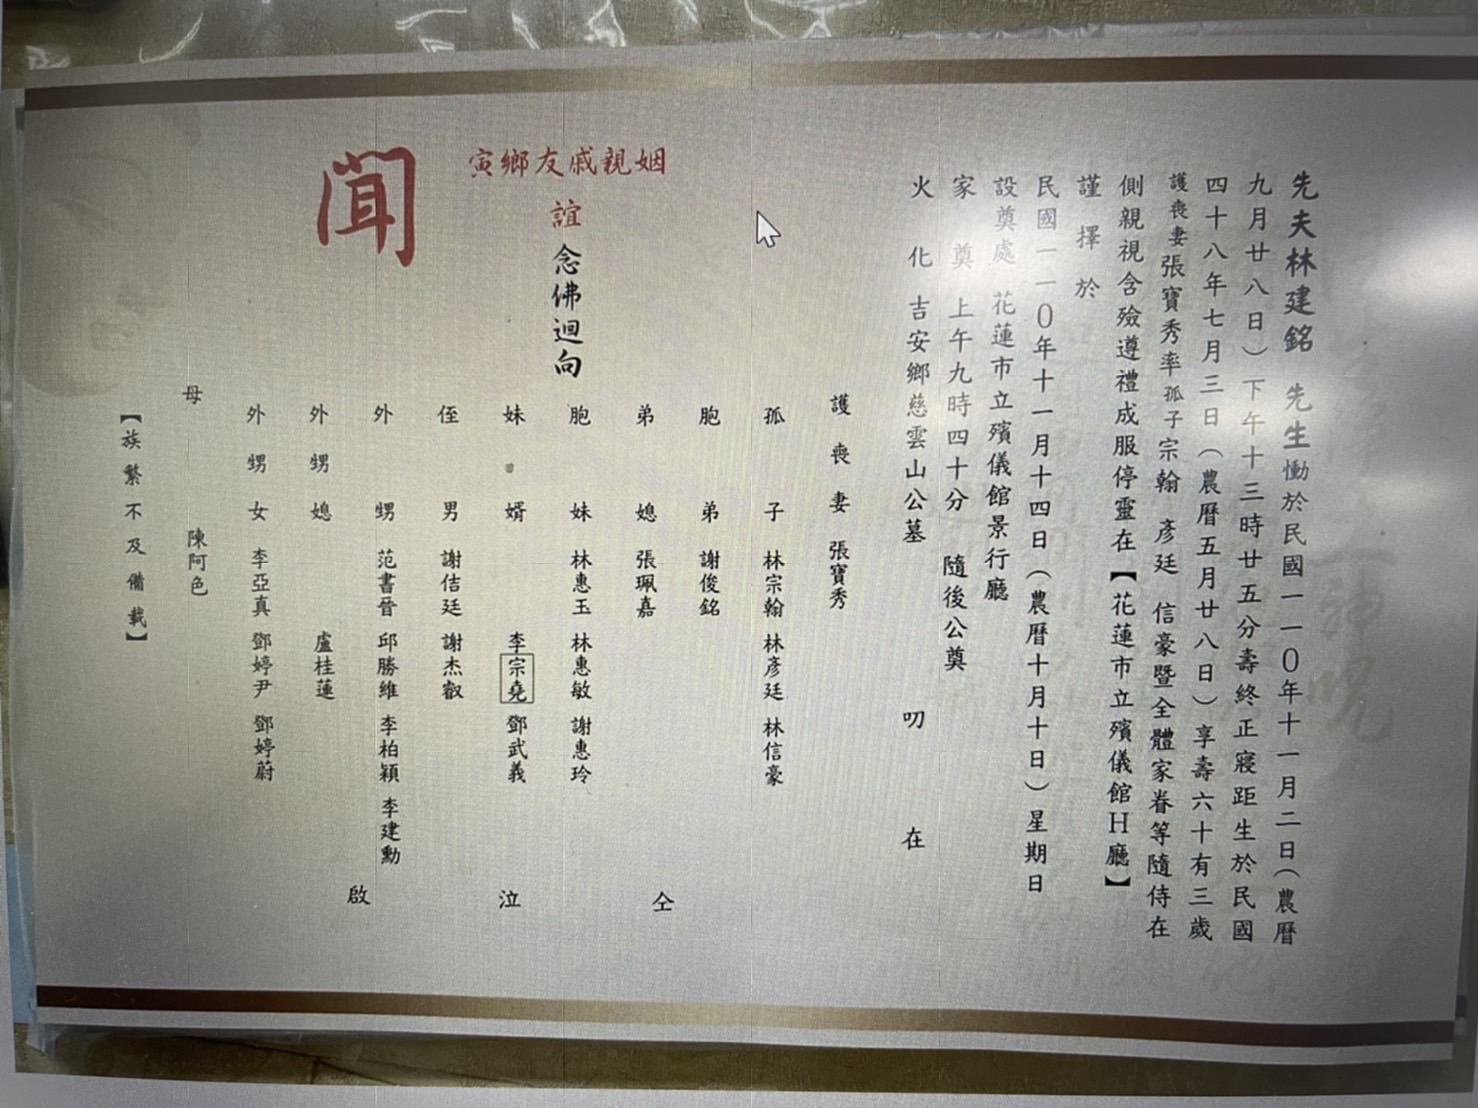 先夫林建銘 先生慟於民國一一0年十一月二日（農曆
九月廿八日）下午十三時廿五分壽終正寢距生於民國
四十八年七月三日（農曆五月廿八日）享壽六十有三歲
護喪妻張寶秀率孤子宗翰 彥廷 信豪暨全體家眷等隨侍在
側親視含殮遵禮成服停靈在【花蓮市立殯儀館H廳】
謹擇於
民國一一0年十一月十四日（農曆十月十日）星期日
設奠處 花蓮市立殯儀館景行廳
家奠 上午九時四十分 隨後公奠
火化 吉安鄉慈雲山公墓 叨在
姻親戚友鄉寅
誼 念佛迴向
聞
護喪妻 張寶秀
孤子 林宗翰 林彥廷 林信豪
胞弟 謝俊銘
弟媳 張珮嘉
胞妹 林惠玉 林惠敏 謝惠玲
妹婿 李宗堯 鄧武義
侄男 謝佶廷 謝杰叡
外甥 范書晉 邱勝維 李柏穎 李建勳
外甥媳 盧桂蓮
外甥女 李亞真 鄧婷尹 鄧婷蔚
母 陳阿色
仝 泣 啟
【族繁不及備載】